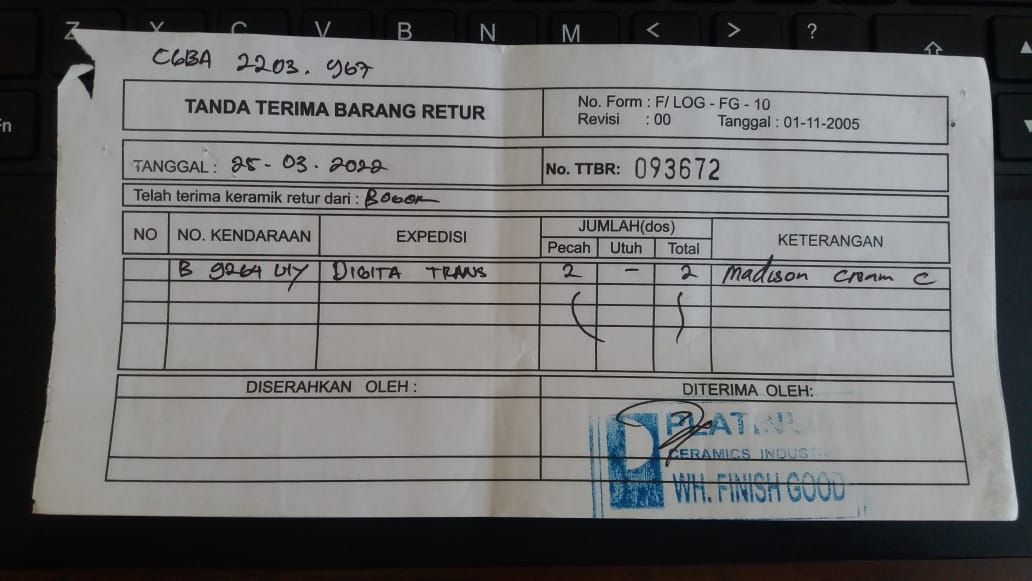 Z X C V B N M < > ?
Fn
CGBA 2203.967
TANDA TERIMA BARANG RETUR
No. Form : F/ LOG - FG - 10
Revisi : 00 Tanggal : 01-11-2005
TANGGAL : 25-03-2022
No. TTBR: 093672
Telah terima keramik retur dari : Bogor
NO NO. KENDARAAN EXPEDISI JUMLAH(dos) KETERANGAN
Pecah Utuh Total
B 9264 UIY DIGITA TRANS 2 - 2 Madison Cream C
DISERAHKAN OLEH : DITERIMA OLEH:
PLATINUM
CERAMICS INDUSTRI
WH. FINISH GOOD